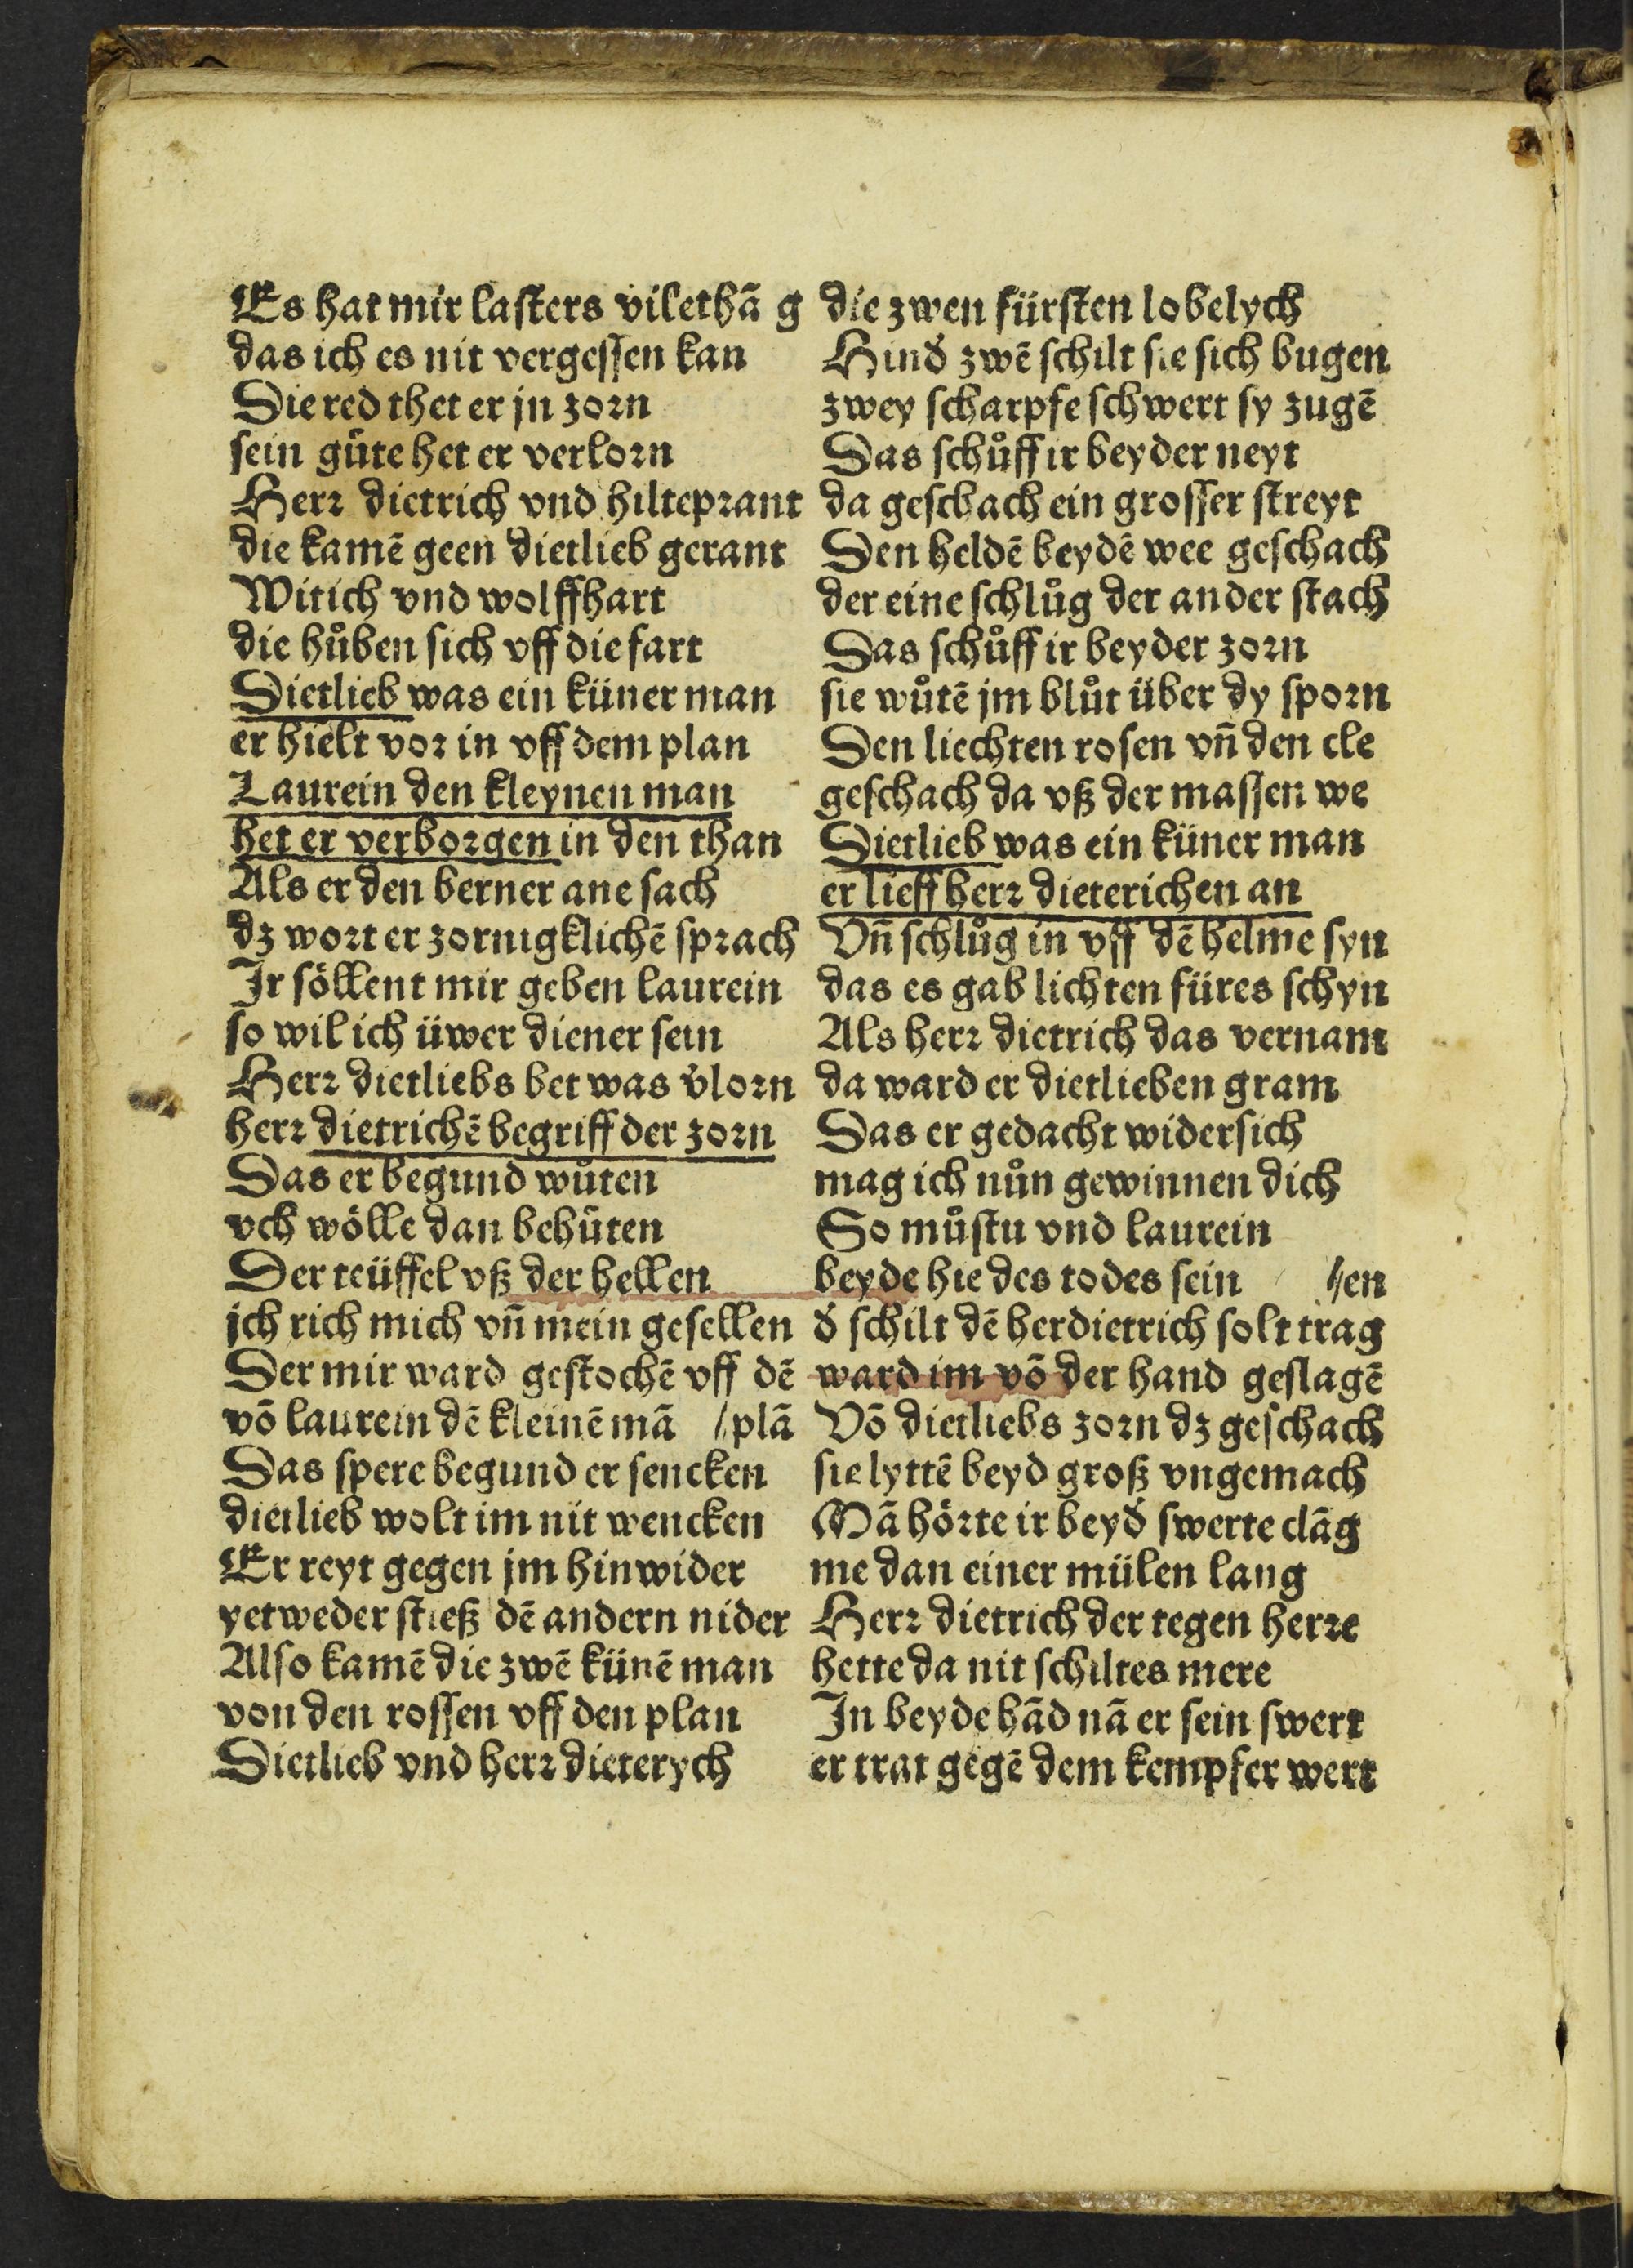 Es hat mir lasters vil ethā g
das ich es nit vergessen kan
Die red thet er jn zorn
sein gůte het er verlorn
Herr dietrich vnd hilteprant
die kamē geen dietlieb gerant
Witich vnd wolffhart
die hůben sich vff die fart
Dietlieb was ein küner man
er hielt vor in vff dem plan
Laurein den kleynen man
het er verborgen in den than
Als er den berner ane sach
dz wort er zornigklichē sprach
Ir söllent mir geben laurein
so wil ich üwer diener sein
Herr dietliebs bet was v̄lorn
herr dietrichē begriff der zorn
Das er begund wůten
vch wölle dan behůten
Der teüffel vß der hellen
ich rich mich vñ mein gesellen
Der mir ward gestochē vff dē
vō laurein dē kleinē mā /plā
Das spere begund er sencken
dietlieb wolt im nit wencken
Er reyt gegen jm hinwider
yetweder stieß dē andern nider
Also kamē die zwē künē man
von den rossen vff den plan
Dietlieb vnd herr dieterych
die zwen fürsten lobelych
Hind̄ zwē schilt sie sich bugen
zwey scharpfe schwert sy zugē
Das schůff ir beyder neyt
da geschach ein grosser streyt
Den heldē beydē wee geschach
der eine schlůg der ander stach
Das schůff ir beyder zorn
sie wůtē jm blůt über dy sporn
Den liechten rosen vñ den cle
geschach da vß der massen we
Dietlieb was ein küner man
er lieff herr dieterichen an
Vñ schlůg in vff dē helme syn
das es gab lichten füres schyn
Als herr dietrich das vernam
da ward er dietlieben gram
Das er gedacht widersich
mag ich nůn gewinnen dich
So můstu vnd laurein
beyde hie des todes sein /en
d̄ schilt dē herdietrich solt trag
ward im vō der hand geslagē
Vō dietliebs zorn dz geschach
sie lyttē beyd groß vngemach
Mā hörte ir beyd̄ swerte clāg
me dan einer mülen lang
Herr dietrich der tegen herre
hette da nit schiltes mere
In beyde hād nā er sein swert
er trat gegē dem kempfer wert